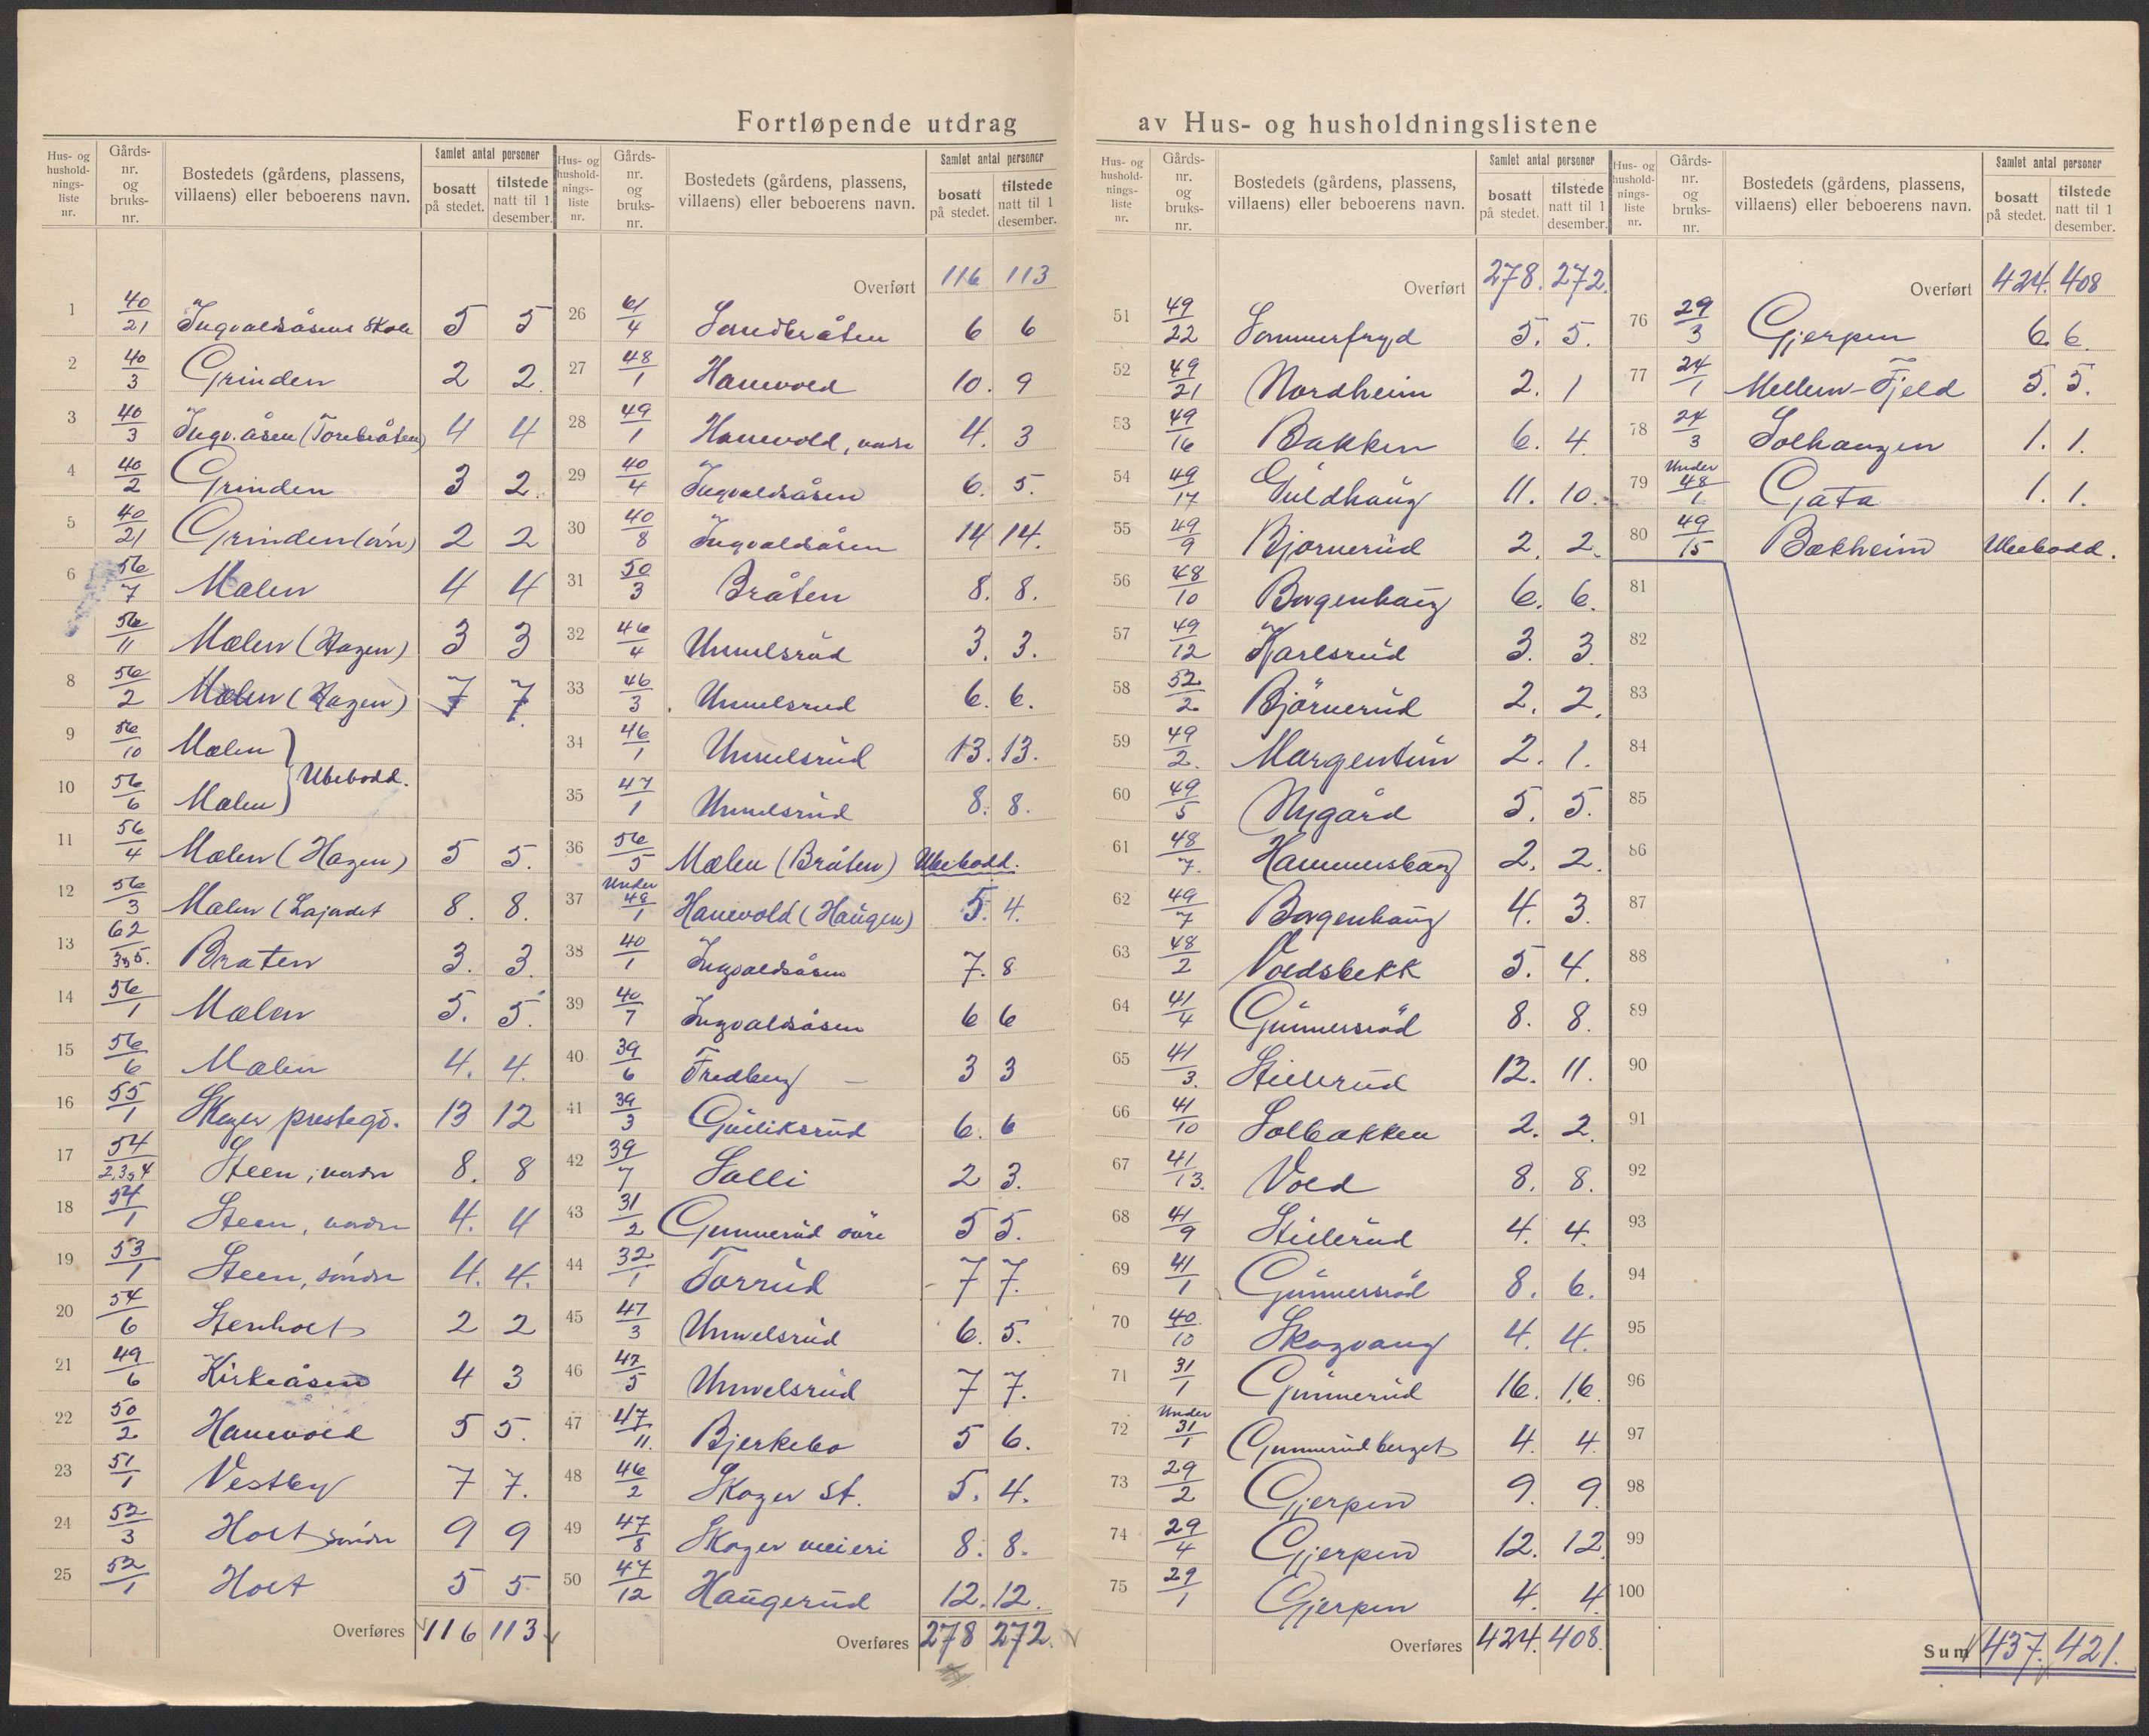 Fortløpende utdrag av Hus- og husholdningslistene
Hus- og hushold-nings-liste nr. | Gårds-nr. og bruks-nr. | Bostedets (gårdens, plassens, villaens) eller beboerens navn. | Samlet antal personer: bosatt på stedet. | tilstede natt til 1 desember.
1 40/21 Ingvaldsåsens Skole 5 5
2 40/3 Grinden 2 2
3 40/3 Ingv.åsen (Torebråten) 4 4
4 40/2 Grinden 3 2.
5 40/21 Grinden (övr) 2 2
6 56/7 Mælen 4 4
56/11 Mælen (Hagen) 3 3
8 56/2 Mælen (Hagen) 7 7
9 56/10 Mælen } Ubebodd.
10 56/6 Mælen }
11 56/4 Mælen (Hagen) 5 5.
12 56/3 Mælen (Lajordet 8. 8.
13 62/3,5. Bråten 3. 3.
14 56/1 Mælen 5. 5.
15 56/6 Mælen 4. 4.
16 55/1 Skoger prestegd. 13 12
17 54/2,3,4 Steen, nordre 8. 8
18 54/1 Steen, nordre 4. 4
19 53/1 Steen, söndre 4. 4.
20 54/6 Stenholt 2 2
21 49/6 Kirkeåsen 4 3
22 50/2 Hanevold 5 5.
23 51/1 Vestby 7 7.
24 52/3 Holt söndre 9 9
25 52/1 Holt 5 5
Overføres 116 113
Hus- og hushold-nings-liste nr. | Gårds-nr. og bruks-nr. | Bostedets (gårdens, plassens, villaens) eller beboerens navn. | Samlet antal personer: bosatt på stedet. | tilstede natt til 1 desember.
Overført 116 113
26 61/4 Sandbråten 6 6
27 48/1 Hanevold 10. 9
28 49/1 Hanevold, nordr 4. 3
29 40/4 Ingvaldsåsen 6. 5.
30 40/8 Ingvaldsåsen 14 14.
31 50/3 Bråten 8. 8.
32 46/4 Unnelsrud 3. 3.
33 46/3 Unnelsrud 6. 6.
34 46/1 Unnelsrud 13. 13.
35 47/1 Unnelsrud 8. 8.
36 56/5 Mælen (Bråten) Ubebodd.
37 Under 48/1 Hanevold (Haugen) 5. 4.
38 40/1 Ingvaldsåsen 7. 8
39 40/7 Ingvaldsåsen 6 6
40 39/6 Fredberg – 3 3
41 39/3 Gulliksrud 6. 6
42 39/7 Solli 2 3.
43 31/2 Gunnerud övre 5 5.
44 32/1 Torrud 7 7.
45 47/3 Unnelsrud 6. 5.
46 47/5 Unnelsrud 7 7.
47 47/11. Bjerkebo 5 6.
48 46/2 Skoger st. 5. 4.
49 47/8 Skoger meieri 8. 8.
50 47/12 Haugerud 12. 12.
Overføres 278 272.
Hus- og hushold-nings-liste nr. | Gårds-nr. og bruks-nr. | Bostedets (gårdens, plassens, villaens) eller beboerens navn. | Samlet antal personer: bosatt på stedet. | tilstede natt til 1 desember.
Overført 278. 272.
51 49/22 Sommerfryd 5. 5.
52 49/21 Nordheim 2. 1
53 49/16 Bakken 6. 4.
54 49/17 Guldhaug 11. 10.
55 49/9 Bjornerud 2. 2.
56 48/10 Borgenhaug 6. 6.
57 49/12 Karlsrud 3. 3.
58 52/2 Björnerud 2. 2.
59 49/2. Margentun 2. 1.
60 49/5 Nygård 5. 5.
61 48/7. Hammersborg 2. 2.
62 49/7 Borgenhaug 4. 3.
63 48/2 Voldsbekk 5. 4.
64 41/4 Gunnersröd 8. 8.
65 41/3. Stillerud 12. 11.
66 41/10 Solbakken 2. 2.
67 41/13. Vold 8. 8.
68 41/9 Stillerud 4. 4.
69 41/1 Gunnersröd 8. 6.
70 40/10 Skogvang 4. 4.
71 31/1 Gunnerud 16. 16.
72 Under 31/1 Gunnerudberget 4. 4.
73 29/2 Gjerpen 9. 9.
74 29/4 Gjerpen 12. 12
75 29/1 Gjerpen 4. 4
Overføres 424. 408.
Hus- og hushold-nings-liste nr. | Gårds-nr. og bruks-nr. | Bostedets (gårdens, plassens, villaens) eller beboerens navn. | Samlet antal personer: bosatt på stedet. | tilstede natt til 1 desember.
Overført 424. 408
76 29/3 Gjerpen 6. 6.
77 24/1 Mellem-Fjeld 5. 5.
78 24/3 Solhaugen 1. 1.
79 Under 48/1 Gata 1. 1.
80 49/15 Bækheim Ubebodd.
81
82
83
84
85
86
87
88
89
90
91
92
93
94
95
96
97
98
99
100
Sum 437. 421.